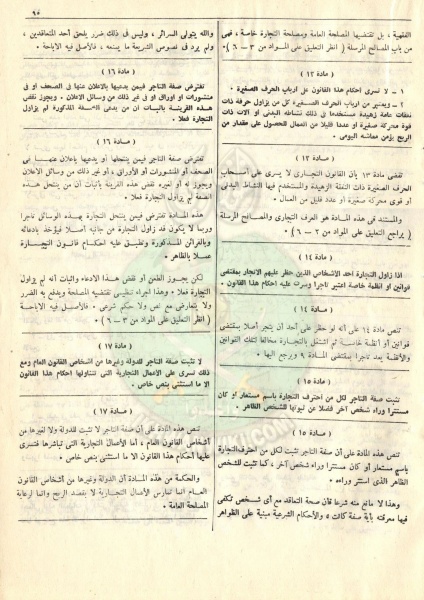 ٩٥
الفقهية ، بل تقتضيها المصلحة العامة ومصلحة التجارة خاصة ، فهى
من باب المصالح المرسلة ( انظر التعليق على المواد من ٣ – ٦ ) ٠
( مادة ١٣ )
١ – لا تسرى أحكام هذا القانون على أرباب الحرف الصغيرة ٠
٢ – ويعتبر من أرباب الحرف الصغيرة كل من يزاول حرفة ذات
نفقات عامة زهيدة مستخدما فى ذلك نشاطه البدنى أو آلات ذات
قوة محركة صغيرة أو عددا قليلا من العمال للحصول على مقدار من
الربح يؤمن معاشه اليومى ٠
( مادة ١٣ )
تقضى مادة ١٣ بأن القانون التجارى لا يسرى على أصحاب
الحرف الصغيرة ذات النفقة الزهيدة والمستخدم فيها النشاط البدنى
أو قوى محركة صغيرة أو عدد قليل من العمال ٠
والمستند فى هذه المادة هو العرف التجارى والمصالح المرسلة
( يراجع التعليق على المواد من ٢ – ٦ ) ٠
( مادة ١٤ )
إذا زاول التجارة أحد الأشخاص الذين حظر عليهم الاتجار بمقتضى
قوانين أو أنظمة خاصة اعتبر تاجرا وسرت عليه أحكام هذا القانون ٠
( مادة ١٤ )
تنص مادة ١٤ على أنه لو حظر على أحد أن يتجر أصلا بمقتضى
قوانين أو أنظمة خاصة ثم اشتغل بالتجارة مخالفا لتلك القوانين
والأنظمة يعد تاجرا بمقتضى المادة ٩ ويرجع إليها ٠
( مادة ١٥ )
تثبت صفة التاجر لكل من احترف التجارة باسم مستعار أو كان
مستترا وراء شخص آخر فضلا عن ثبوتها للشخص الظاهر ٠
( مادة ١٥ )
تنص هذه المادة على أن صفة التاجر تثبت لكل من احترف التجارة
باسم مستعار أو كان مستترا وراء شخص آخر ، كما تثبت للشخص
الظاهر الذى استتر وراءه ٠
وهذا لا مانع منه شرعا فأن صحة التعاقد مع أى شخص تكفى
فيها معرفته بأية صفة كانت ، والأحكام الشرعية مبنية على الظواهر
والله يتولى السرائر ، وليس فى ذلك ضرر يلحق أحد المتعاقدين ،
ولم يرد فى نصوص الشريعة ما يمنعه ، فالأصل فيه الإباحة ٠
( مادة ١٦ )
تفترض صفة التاجر فيمن ينتحلها بالإعلان عنها فى الصحف أو فى
منشورات أو أوراق أو فى غير ذلك من وسائل الإعلان ٠ ويجوز نقض
هذه القرينة بإثبات أن من يدعى الصفة المذكورة لم يزاول
التجارة فعلا ٠
( مادة ١٦ )
تفترض صفة التاجر فيمن ينتحلها أو يدعيها بإعلان عنها فى
الصحف أو المنشورات أو الأوراق ، أو غير ذلك من وسائل الإعلان
ويجوز له أو لغيره نقض هذه القرينة بإثبات أن من ينتحل هذه
الصفة لم يزاول التجارة فعلا ٠
هذه المادة تفترض فيمن ينتحل التجارة بهذه الوسائل تاجرا
وربما لا يكون قد زاول التجارة من جانبه أصلا فيؤخذ بادعائه
وبالقرائن المذكورة وتطبق عليه أحكام قانون التجارة
عملا بالظاهر ٠
لكن يجوز الطعن أو نقض هذا الادعاء وإثبات أنه لم يزاول
التجارة فعلا ، وهذا إجراء تنظيمى تقتضيه المصلحة ويدفع به الضرر
ولا يتعارض مع نص ولا حكم شرعى ، فالأصل فيه الإباحة
( انظر التعليق على المواد من ٣ – ٦ ) ٠
( مادة ١٧ )
لا تثبت صفة التاجر للدولة وغيرها من أشخاص القانون العام ومع
ذلك تسرى على الأعمال التجارية التى تتناولها أحكام هذا القانون
إلا ما استثنى بنص خاص ٠
( مادة ١٧ )
تنص هذه المادة على أن صفة التاجر لا تثبت للدولة ولا لغيرها من
أشخاص القانون العام ، أما الأعمال التجارية التى تباشرها فتسرى
عليها أحكام هذا القانون إلا ما استثنى بنص خاص ٠
والحكمة من هذه المادة أن الدولة وغيرها من أشخاص القانون
العام إنما تمارس الأعمال التجارية لا بقصد الربح وإنما لرعاية
المصلحة العامة ٠